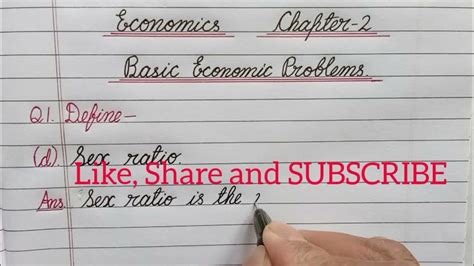 Economics Chapter-2
Basic Economic Problems.
Q1. Define-
(d). Sex ratio.
Like, Share and SUBSCRIBE
Ans. Sex ratio is the